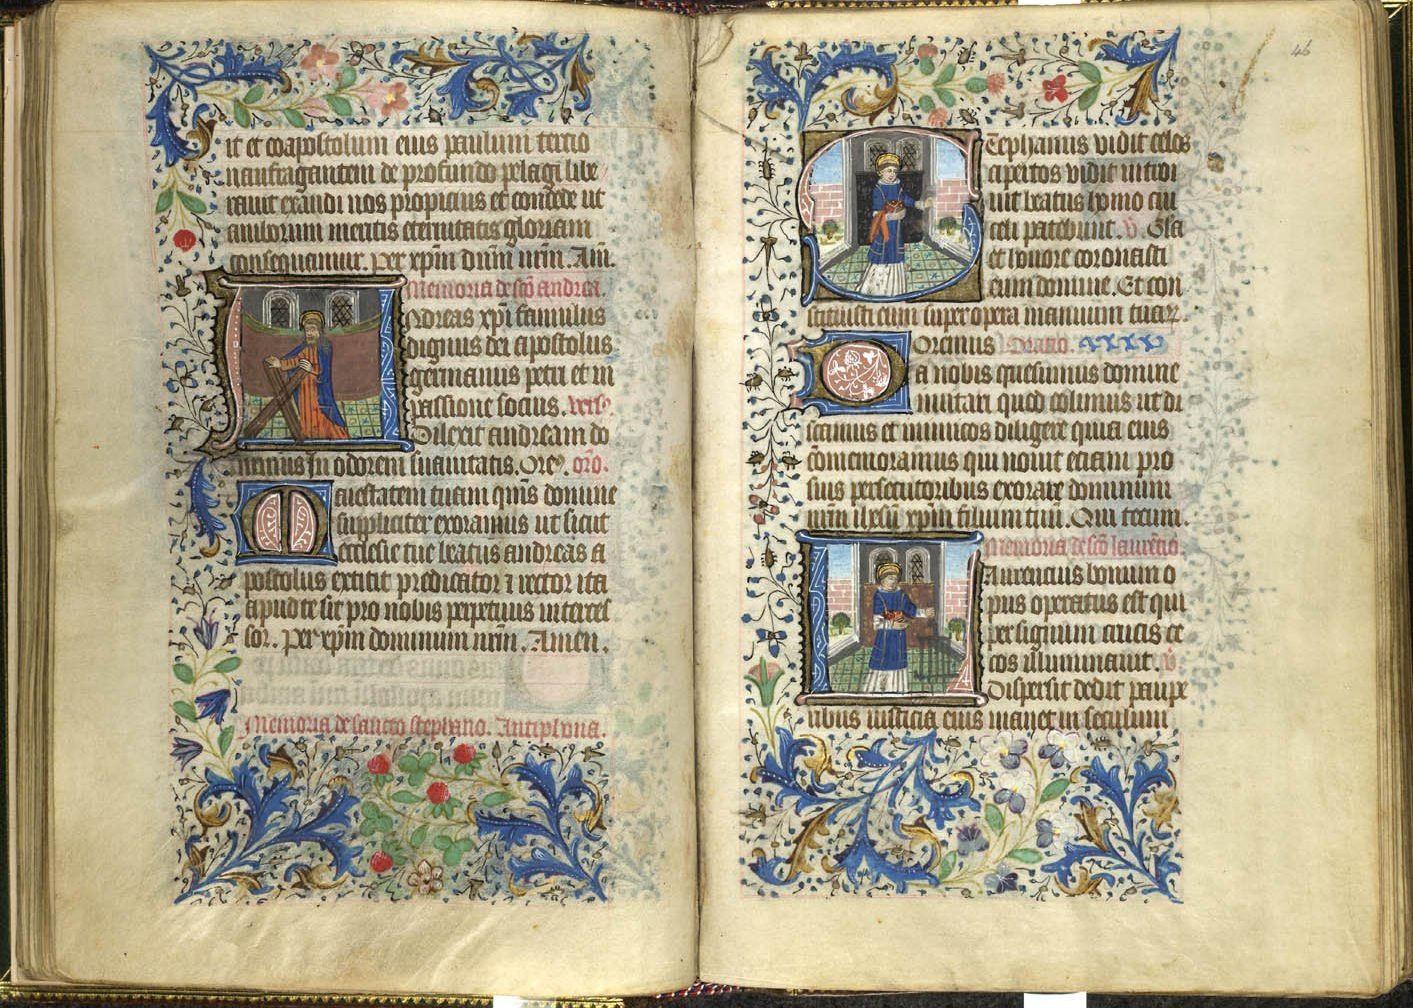 it et coapostolum eius paulum tercio
naufragantem de profundo pelagi libe
rauit exaudi nos propicius et concede ut
amborum meritis eternitatis gloriam
consequamur. Per xpm dnm nrm. Am.
Memoria de sco andrea.
Andreas xpi famulus
dignus dei apostolus
germanus petri et in
passione socius. vers
Dilexit andream do
minus In odorem suauitatis. Ore. oro.
Maiestatem tuam qms domine
suppliciter exoramus ut sicut
ecclesie tue beatus andreas a
postolus extitit predicator et rector ita
apud te sit pro nobis perpetuus interces
sor. Per xpm dominum nrm. Amen.
Memoria de sancto stephano. Antiphona.
46
Stephanus vidit celos
apertos vidit et introi
uit beatus homo cui
celi patebunt. v Glo
et honore coronasti
eum domine. Et con
stituisti eum super opera manuum tuarum.
Oremus Oratio.
Da nobis quesumus domine
imitari quod colimus ut di
scamus et inimicos diligere quia eius
comemoramus qui nouit eciam pro
suis persecutoribus exorare dominum
nrm ihesum xpm filium tuum. Qui tecum.
Memoria de sco laurencio.
Laurencius bonum o
pus operatus est qui
per signum crucis ce
cos illuminauit. v
Dispersit dedit paupe
ribus iusticia eius manet in seculum